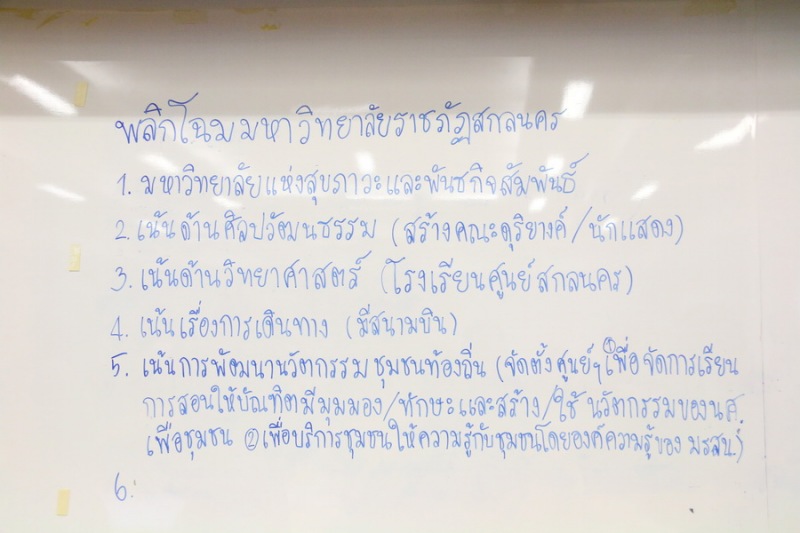 พลิกโฉมมหาวิทยาลัยราชภัฏสกลนคร
1. มหาวิทยาลัยแห่งสุขภาวะและพันธกิจสัมพันธ์
2. เน้นด้านศิลปวัฒนธรรม (สร้างคณะดุริยางค์/นักแสดง)
3. เน้นด้านวิทยาศาสตร์ (โรงเรียนศูนย์สกลนคร)
4. เน้นเรื่องการเดินทาง (มีสนามบิน)
5. เน้นการพัฒนานวัตกรรมชุมชนท้องถิ่น (จัดตั้งศูนย์ฯ ①เพื่อจัดการเรียน
การสอนให้บัณฑิตมีมุมมอง/ทักษะและสร้าง/ใช้นวัตกรรมของนศ.
เพื่อชุมชน ②เพื่อบริการชุมชนให้ความรู้กับชุมชนโดยองค์ความรู้ของ มรสน.)
6.